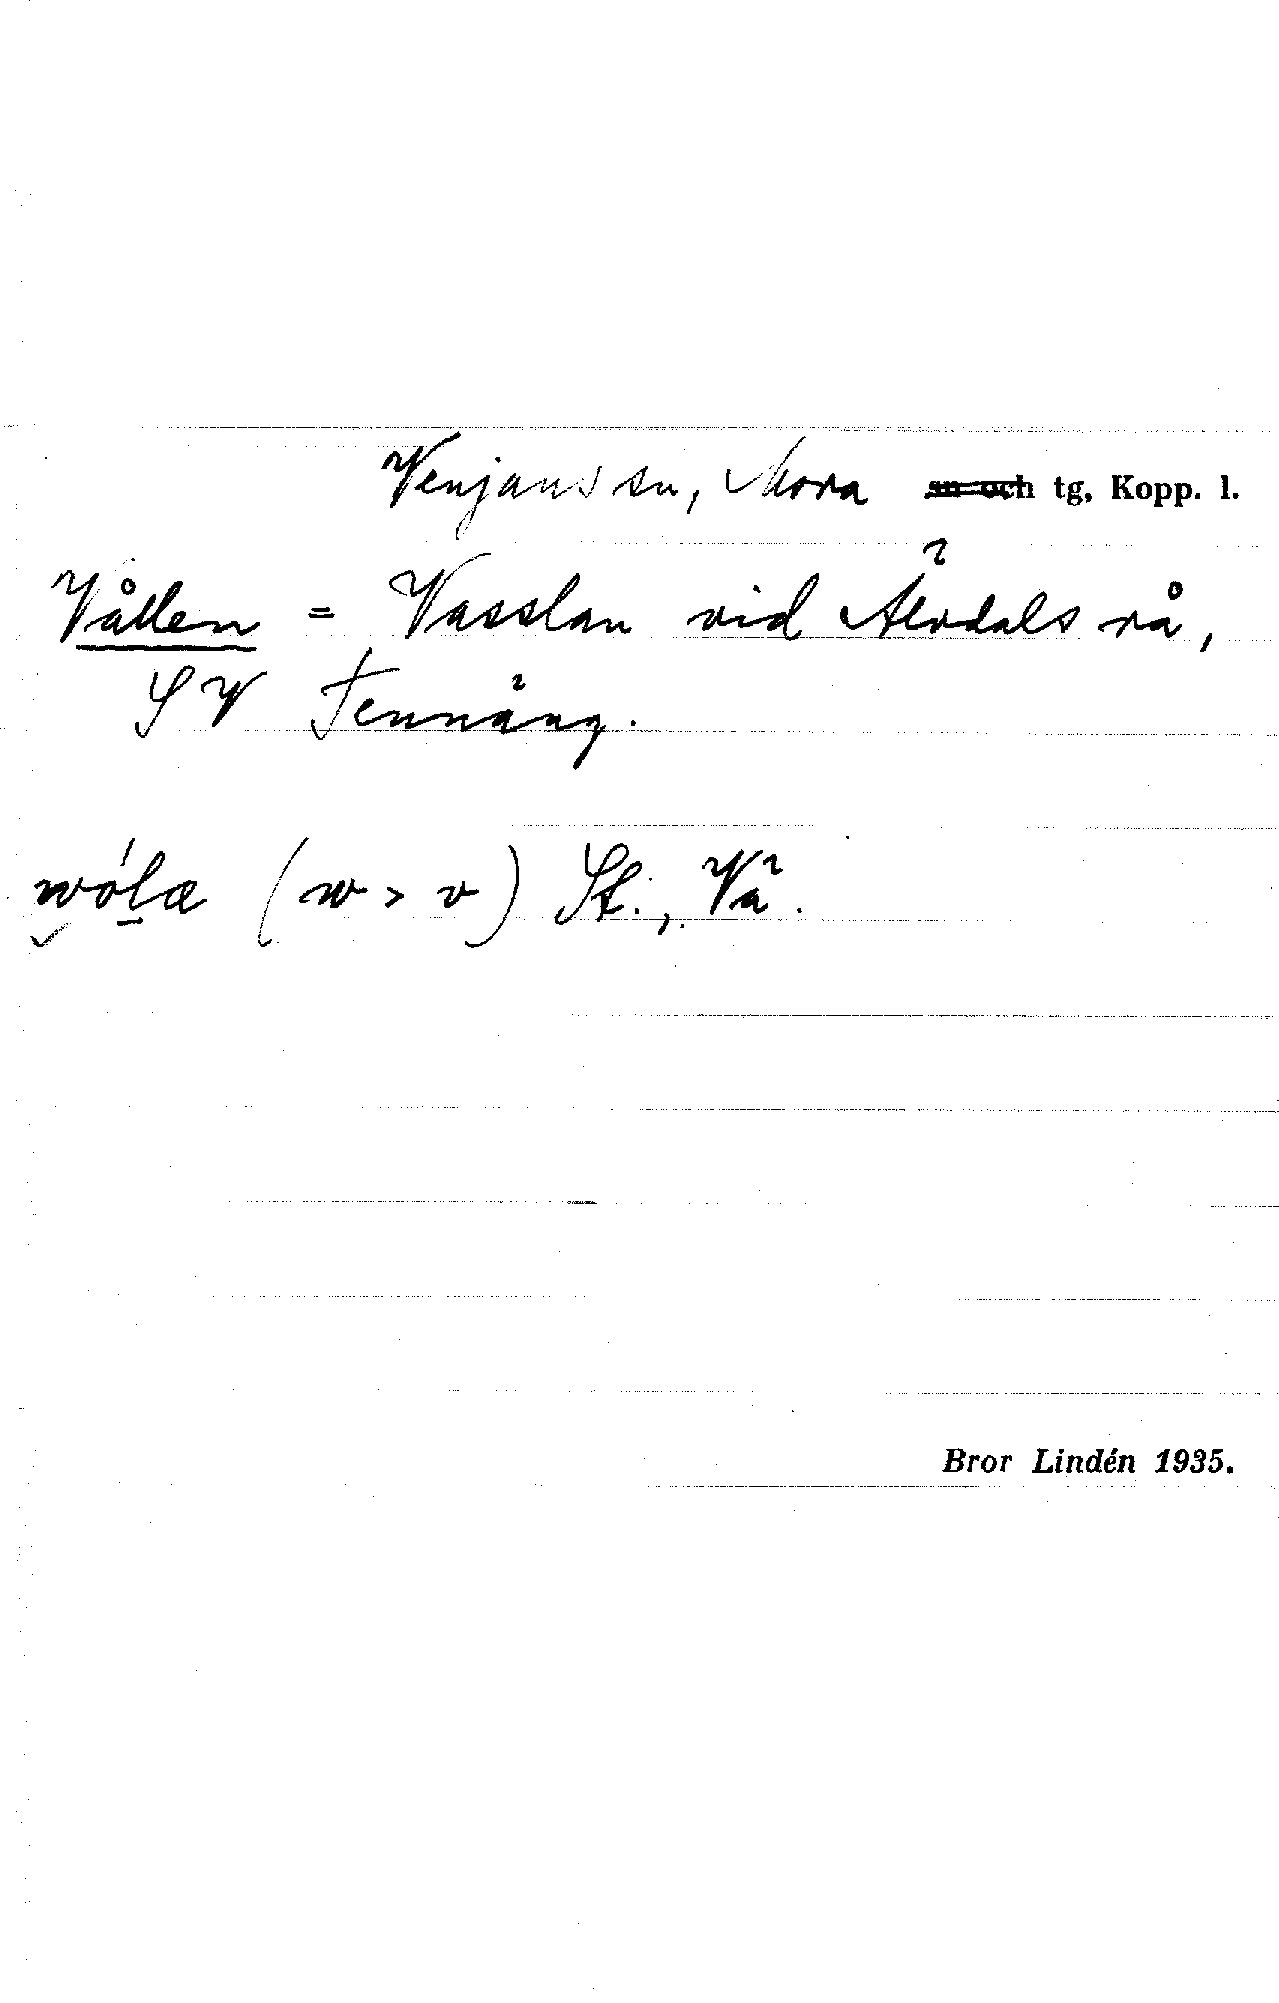 Venjans sn, Mora sn och tg, Kopp. l.
Vållen = Vasslan vid Älvdals rå,
SV Tennäng.
wólæ (w > v) St., Vä.
Bror Lindén 1935.